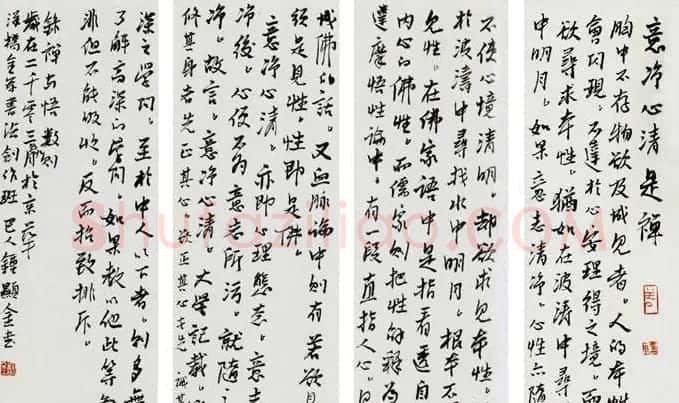 意净心清是禅
胸中不存物欲及成见者。人的本性
会出现。不达于心安理得之境。而
欲寻求本性。犹如在波涛中寻
中明月。如果意志清净。心性亦随
不使心境清明。却欲求见本性。
于波涛中寻找水中明月。根本不
见性。在佛家语中是指看透自
内心的佛性。而儒家则把性解释为
达摩悟性论中。有一段直指人心。见
成佛的话。又血脉论中则有若欲见
须是见性性即是佛。
意净心清。亦即心理态意。意志
净后。心便不为意志所污。就随
净。故言。意净心清。大学记载。
修其身者先正其心欲正其心者先诚其
深之学问。至于中人以下者。则多无
了解高深的学问如果教以他此等
非但不能吸收。反而招致排斥。
录禅与悟数则
岁在二千零三年于京华
金书法创作班巴人钟显金书
Shufaziliao.COM